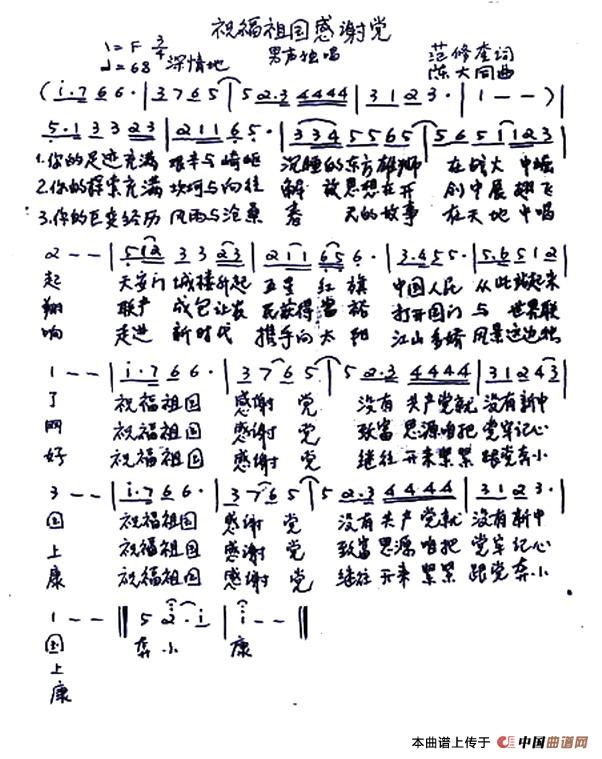 祝福祖国感谢党
1=F 3/4
♩=68 深情地
男声独唱
范修奎词
陈大同曲
(i·7 6 6·|3 7 6 5|5 2·3 4 4 4 4|3 1 2 3·|1 - -)|
5·1 3 3 2 3|2 1 1 6 5·|3 3 4 5 5 6 5|5 6 5 1 1 2 3|
1.你的足迹充满 艰辛与崎岖 沉睡的东方雄狮 在 大 中崛
2.你的探索充满 坎坷与向往 解放思想在开 创中展翅飞
3.你的巨变经历 风雨与沧桑 春天的故事 在天地中唱
2 - -|5 1 2 3 3 2 3|2 1 1 6 5·|3·4 5 5·|5·6 5 1 2|
起 天安门 城楼升起 五星红旗 中国人民 从此站起来
翔 联产 承包让农 民获得富裕 打开国门 与 世界联
响 走进 新时代 携手向太阳 江山多娇 风景这边独
1 - -|i·7 6 6·|3 7 6 5|5 2·3 4 4 4 4|3 1 2 4 3|
了 祝福祖国 感谢 党 没有 共产党就 没有新中
网 祝福祖国 感谢 党 致富 思源咱把 党牢记心
好 祝福祖国 感谢 党 继往 开来紧紧 跟党奔小
3 - -|i·7 6 6·|3 7 6 5|5 2·3 4 4 4 4|3 1 2 3·|
国 祝福祖国 感谢 党 没有 共产党就 没有新中
上 祝福祖国 感谢 党 致富 思源咱把 党牢记心
康 祝福祖国 感谢 党 继往 开来紧紧 跟党奔小
1 - -‖5 2·i|i - -‖
国 奔小 康
上
康
本曲谱上传于 中国曲谱网